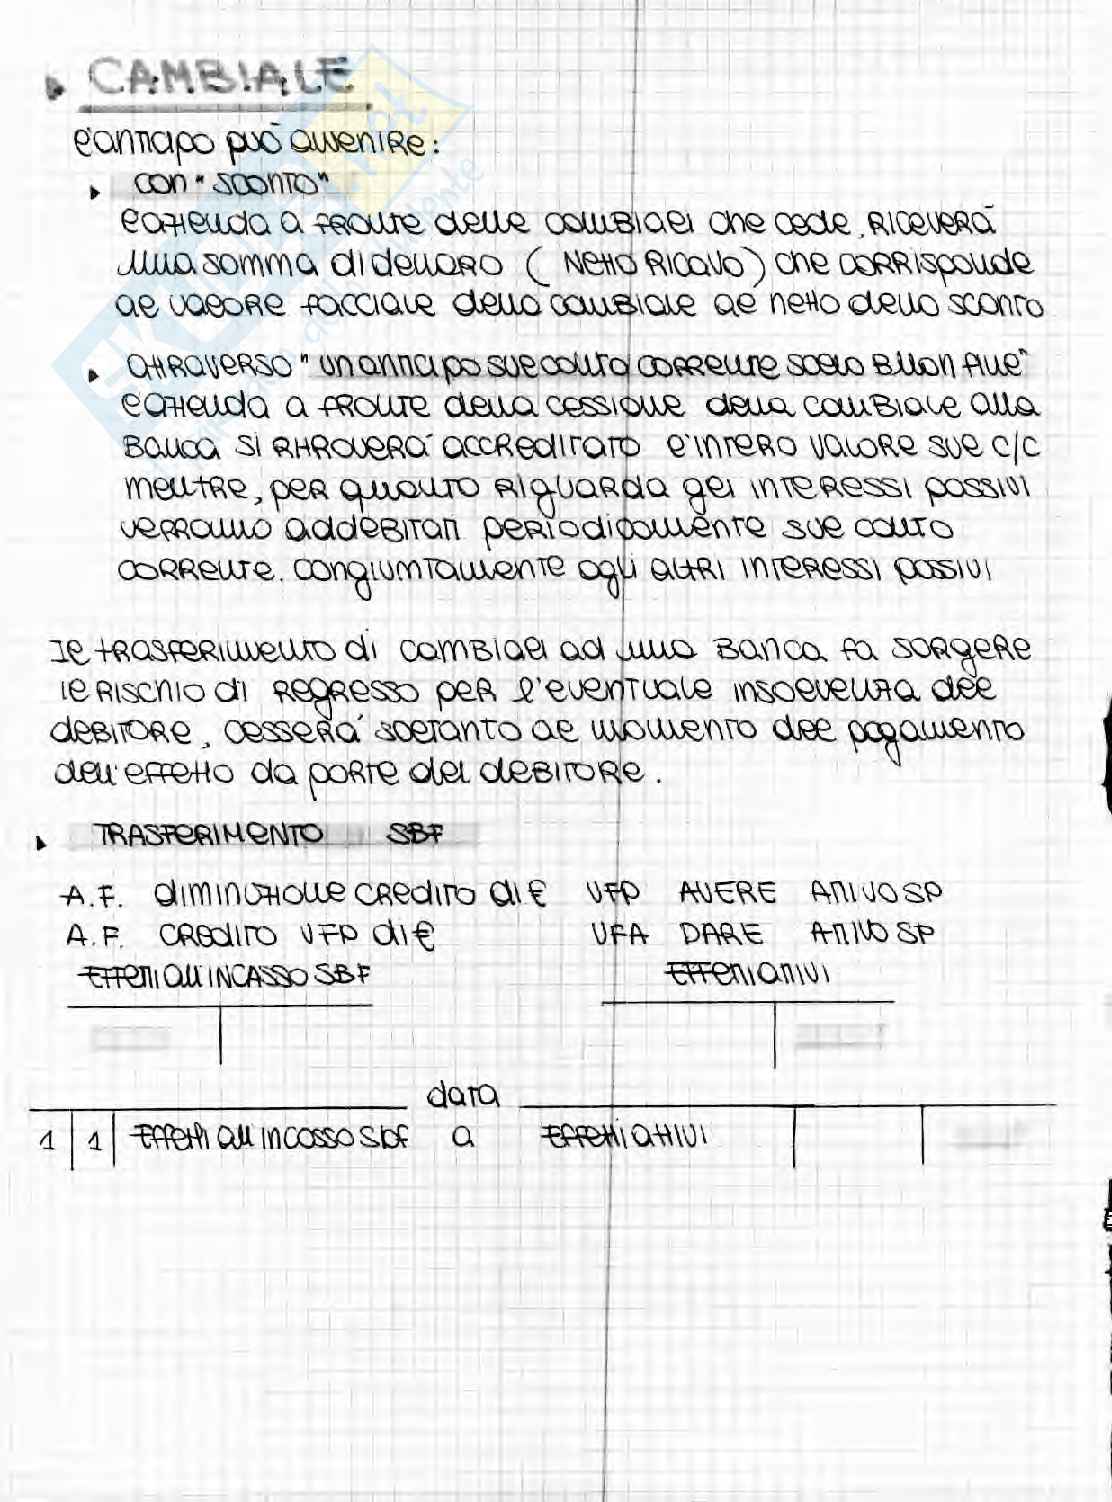 CAMBIALE
l'anticipo può avvenire:
con "sconto"
l'azienda a fronte delle cambiali che cede, riceverà
una somma di denaro (netto ricavo) che corrisponde
al valore facciale della cambiale al netto dello sconto
attraverso "un anticipo sul conto corrente salvo buon fine"
l'azienda a fronte della cessione della cambiale alla
banca si ritroverà accreditato l'intero valore sul c/c
mentre, per quanto riguarda gli interessi passivi
verranno addebitati periodicamente sul conto
corrente. congiuntamente agli altri interessi passivi
Il trasferimento di cambiali ad una banca fa sorgere
il rischio di regresso per l'eventuale insolvenza del
debitore, cesserà soltanto al momento del pagamento
dell'effetto da parte del debitore.
TRASFERIMENTO SBF
A.F. diminuzione credito di € VFP AVERE ATTIVO SP
A.F. credito VFP di € VFA DARE ATTIVO SP
Effetti all'INCASSO SBF Effetti attivi
data
1 1 Effetti all'incasso sbf a Effetti attivi